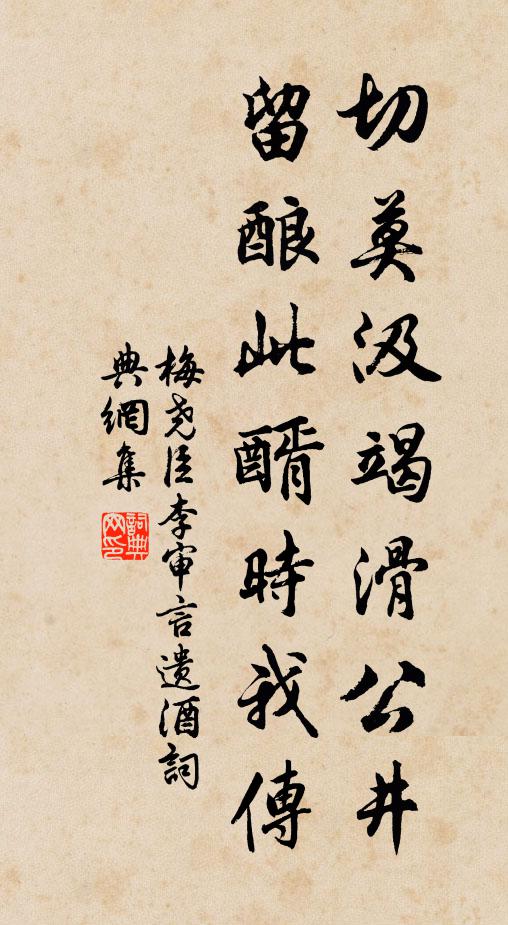 切莫汲竭滑公井
留酿此醑時我傳
梅尧臣李审言遗酒詞
典網集
詞典網印